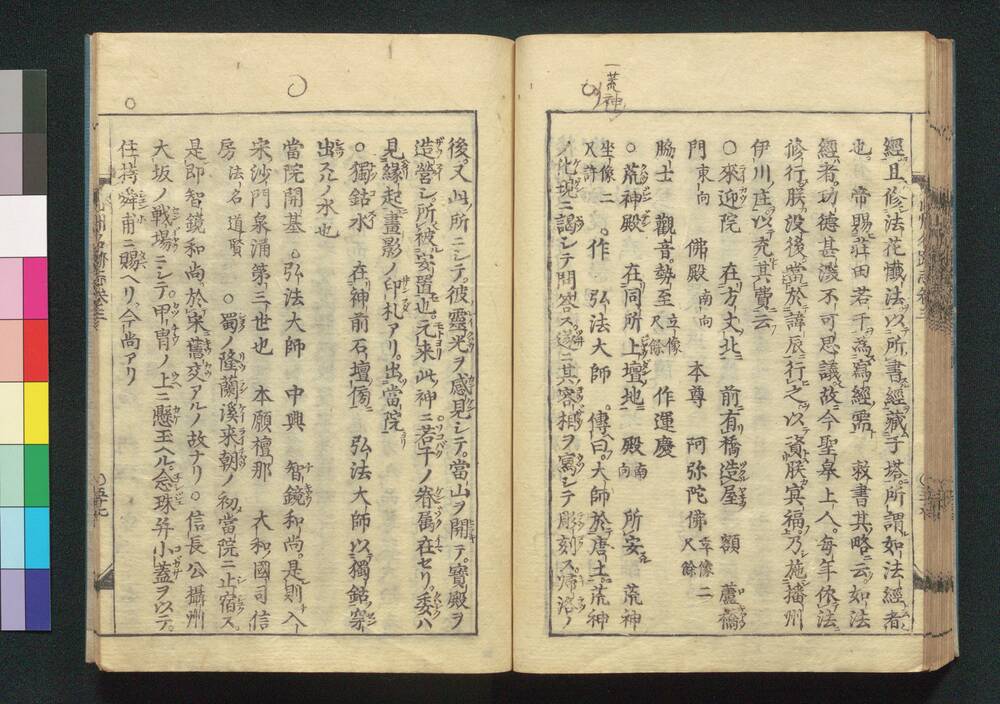 一荒神
經且修法花懺法以所書經藏于塔所謂如法經者
也 帝賜莊田若干為寫經需 敕書其略云如法
經者功德甚深不可思議故今聖皐上人每年依法
修行朕没後當於諱辰行之以資朕冥福乃施播州
伊川庄以充其費云
○來迎院 在方丈北 前有橋造屋 額 蘆橋
門東向 佛殿南向 本尊 阿弥陀佛坐像二尺餘
脇士 觀音勢至立像尺餘 作運慶
○荒神殿 在同所上壇地 殿南向 所安 荒神
坐像二尺許 作 弘法大師 傳曰大師於唐土荒神
ノ化現ニ謁シテ問答ス遂ニ其容相ヲ寫シテ彫刻ス帰洛ノ
後又此所ニシテ彼靈光ヲ感見シテ當山ヲ開テ寶殿ヲ
造營シ所被安置也元来此神ニ若干ノ眷属在セリ委ハ
見縁起畫影ノ印札アリ出當院
○獨鈷水 在神前石壇傍 弘法大師以獨鈷穿
出乃水也
當院開基 弘法大師 中興 智鏡和尚是則入
宋沙門泉涌第三世也 本願檀那 大和國司信
房法名道賢 ○蜀ノ隆蘭溪来朝ノ初當院ニ止宿ス
是即智鏡和尚於宋舊交アルノ故ナリ○信長公攝州
大坂ノ戰場ニシテ甲冑ノ上ニ懸玉ヘル念珠并小蓋ヲ以テ
住持舜甫ニ賜ヘリ今尚アリ